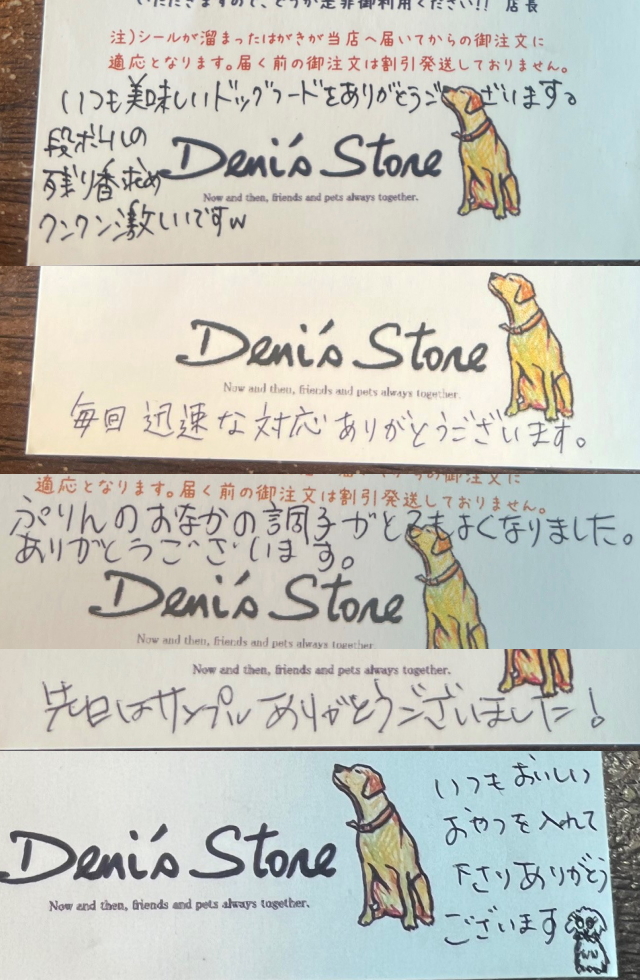 いただきますので、どうか是非御利用ください!! 店長
注)シールが溜まったはがきが当店へ届いてからの御注文に
適応となります。届く前の御注文は割引発送しておりません。
いつも美味しいドッグフードをありがとうございます。
段ボールの
残り香求め
クンクン激しいですw
Deni's Store
Now and then, friends and pets always together.
Deni's Store
Now and then, friends and pets always together.
毎回 迅速な対応 ありがとうございます。
の御注文に
適応となります。届く前の御注文は割引発送しておりません。
ぷりんのおなかの調子がとてもよくなりました。
ありがとうございます。
Deni's Store
Now and then, friends and pets always together
Now and then, friends and pets always together.
先日はサンプルありがとうございました!
Deni's Store
Now and then, friends and pets always together.
いつもおいしい
おやつを入れて
下さりありがとう
ございます